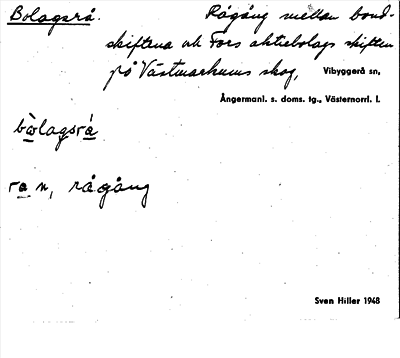 Bolagsrå. Rågång mellan bond-
skiftena och Fors aktiebolags skiften
på Västmarkums skog, Vibyggerå sn,
Ångermanl. s. doms. tg., Västernorrl. l.
bòlagsrá
ra n, rågång
Sven Hiller 1948